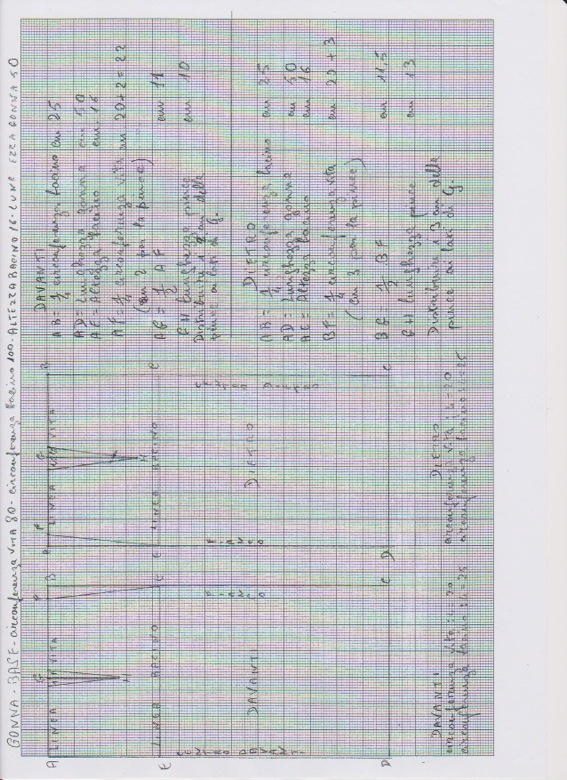 GONNA - BASE - circonferenza VITA 80 - circonferenza bacino 100 - ALTEZZA BACINO 16 - LUNGHEZZA GONNA 50
DAVANTI
AB = 1/4 circonferenza bacino cm 25
AD = Lunghezza gonna cm 50
AE = Altezza bacino cm. 16
AF = 1/4 circonferenza vita cm 20+2 = 22
(cm 2 per la pince)
AG = 1/2 AF cm 11
GH lunghezza pince cm 10
Distribuire i 2 cm della
pince ai lati di G.
DIETRO
AB = 1/4 circonferenza bacino cm 25
AD = Lunghezza gonna cm 50
AE = Altezza bacino cm 16
BF = 1/4 circonferenza vita cm 20 + 3
(cm 3 per la pince)
BG = 1/2 BF cm 11,5
GH lunghezza pince cm 13
Distribuire i 3 cm della
pince ai lati di G.
A LINEA VITA G F B
E LINEA BACINO H C
CENTRO DAVANTI
DAVANTI
FIANCO
D C
A F LINEA VITA G B
E LINEA BACINO H C
FIANCO
DIETRO
CENTRO DIETRO
D C
DAVANTI
circonferenza vita : 4 = 20
circonferenza bacino : 4 = 25
DIETRO
circonferenza vita : 4 = 20
circonferenza bacino : 4 = 25